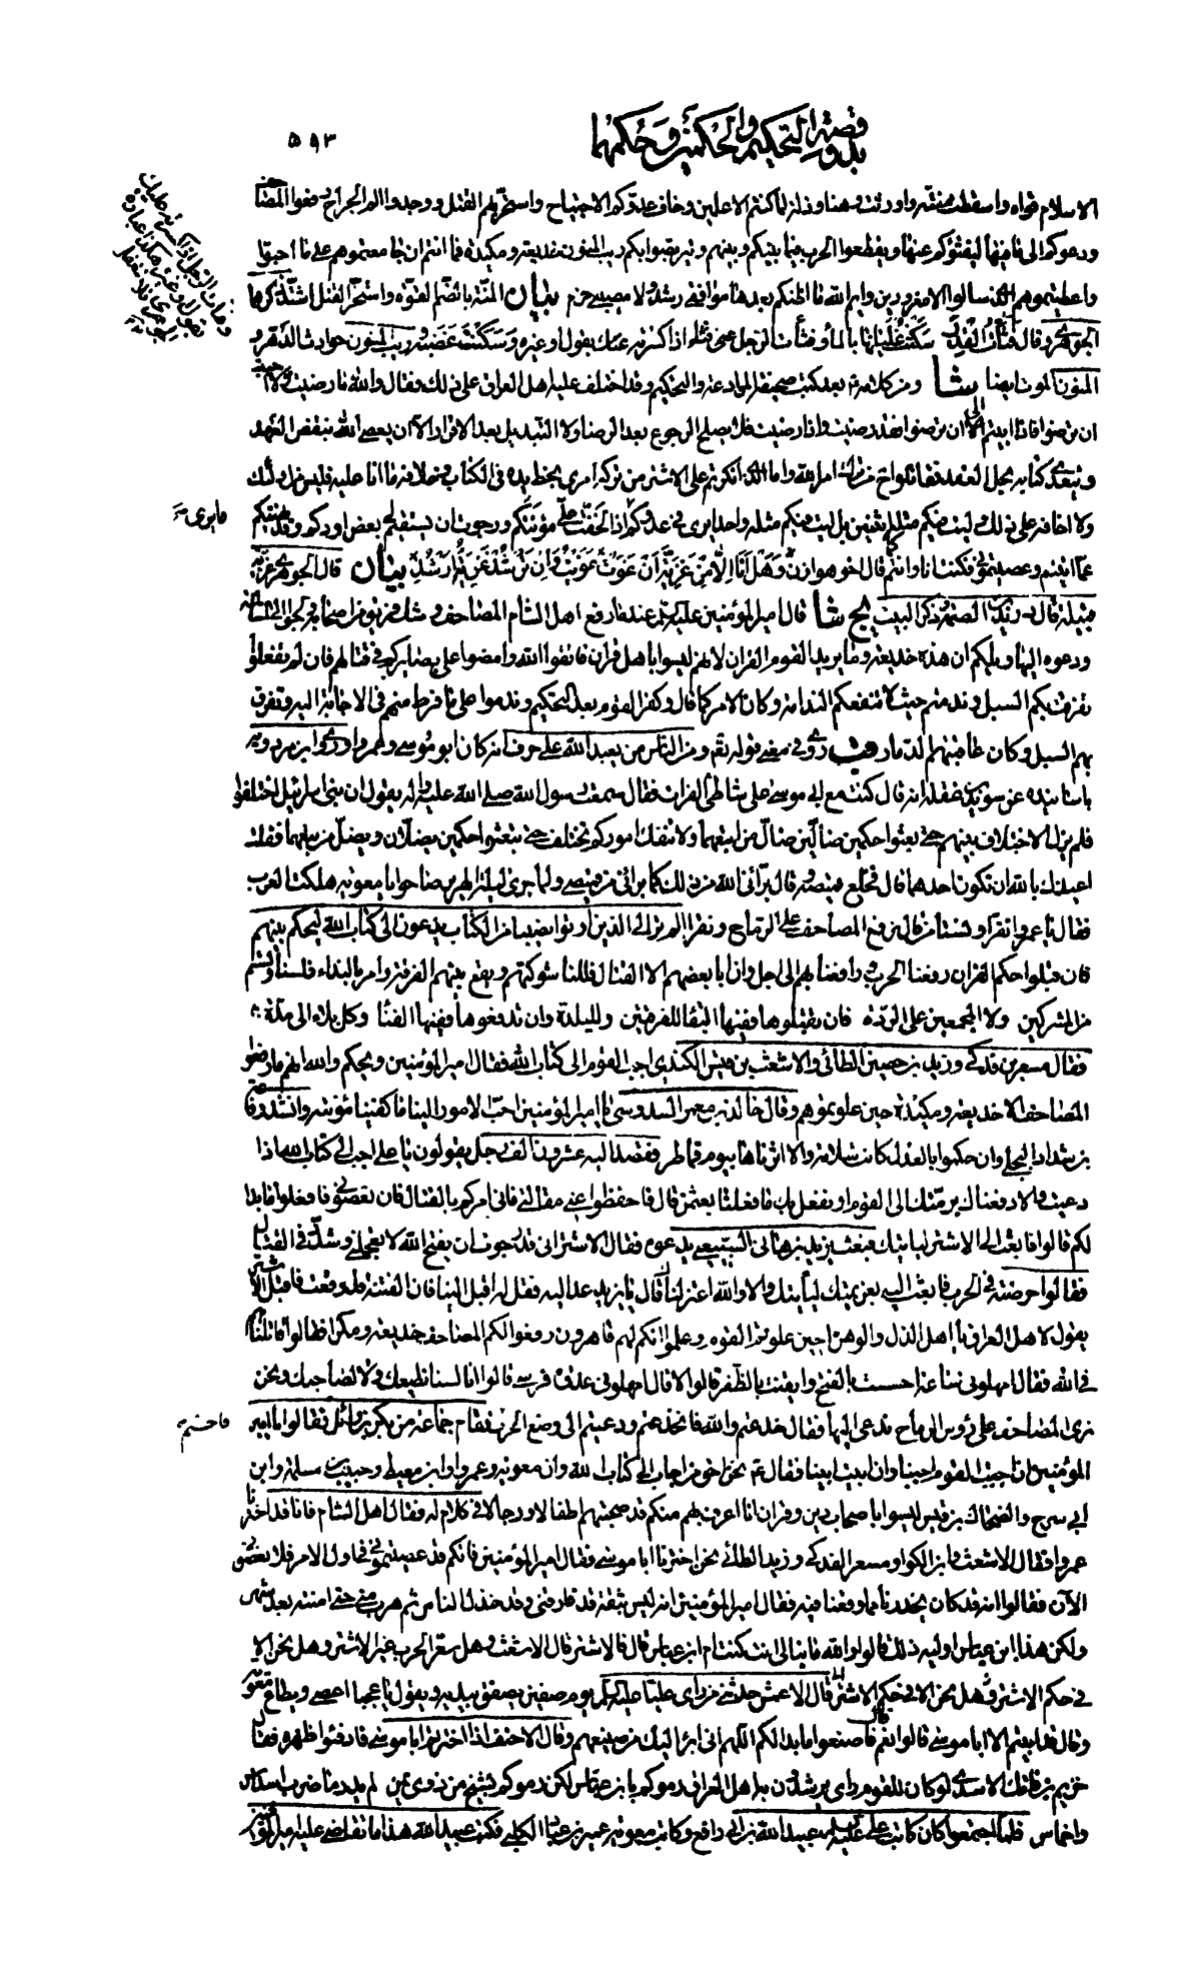 بدو قصة التحكيم والحكمين وحكمهما
٥٩٣
الاسلام قواه واسقطت منته واورثت وهنا وذلة لما كنتم الاعلين وخاف عدوكم الاجتياح واستحر بهم القتل ووجدوا الم الجراح رفعوا المصاحف
ودعوكم الى ما فيها ليفثؤكم عنها ويقطعوا الحرب فيما بينكم وبينهم ويتربصوا بكم ريب المنون خديعة ومكيدة فما انتم ان جامعتموهم على ما احبوا
واعطيتموهم الذي سالوا الا مغرورين وايم الله ما اظنكم بعدها موافقي رشد ولا مصيبي حزم بيان المنة بالضم القوة واستحر القتل اشتد كرها
الجوهري وقال فثأت القدر سكنت غليانها بالماء وفثأت الرجل عني فثاء اذا كسرته عنك بقول وغيره وسكنت غضبه وريب المنون حوادث الدهر و
المنون الموت ايضا شا ومن كلامه بعد كتب صحيفة الموادعة والتحكيم وقد اختلف عليه اهل العراق على ذلك فقال والله ما رضيت ولا احببت
ان ترضوا فاذا ابيتم الا ان ترضوا فقد رضيت واذا رضيت فلا يصلح الرجوع بعد الرضا ولا التبديل بعد الاقرار الا ان يعصى الله بنقض العهد
ويتعدى كتابه بحل العقد فقاتلوا حينئذ من ترك امر الله واما الذي انكرتم على الاشتر من تركه امري بخط يده في الكتاب وخلافه ما انا عليه فليس من اولئك
ولا اخافه على ذلك وليت فيكم مثله اثنين بل ليت فيكم مثله واحدا يرى في عدوكم اذا لخفت علي مؤنتكم ورجوت ان يستقيم لي بعض اودكم وقد نهيتكم
عما اتيتم وعصيتموني فكنت انا وانتم كما قال اخو هوازن وهل انا الا من غزية ان غوت غويت وان ترشد غزية ارشد بيان قال الجوهري غزية
قبيلة قال دريد بن الصمة وذكر البيت يج شا قال امير المؤمنين عليه السلام عندما رفع اهل الشام المصاحف وشك فريق من اصحابه ولجوا الى المسالمة
ودعوه اليها ويلكم ان هذه خديعة وما يريد القوم القران لانهم ليسوا باهل قران فاتقوا الله وامضوا على بصائركم في قتالهم فان لم تفعلوا
تفرقت بكم السبل وندمتم حيث لا تنفعكم الندامة وكان الامر كما قال وكفر القوم بعد التحكيم وندموا على ما فرط منهم في الاجابة اليه وتفرق
بهم السبل وكان عاقبتهم الدمار قب روي في معنى قوله تعالى ومن الناس من يعبد الله على حرف انه كان ابو موسى وعمرو وروى ابن مردويه
باسانيده عن سويد بن غفلة انه قال كنت مع ابي موسى على شاطئ الفرات فقال سمعت رسول الله صلى الله عليه وآله يقول ان بني اسرائيل اختلفوا
فلم يزل الاختلاف بينهم حتى بعثوا حكمين ضالين ضال من اتبعهما ولا تنفك اموركم تختلف حتى تبعثوا حكمين يضلان ويضل من تبعهما فقلت
اعيذك بالله ان تكون احدهما قال فخلع قميصه وقال برأني الله من ذلك كما برأني من قميصي ولما جرى ليلة الهرير صاحوا يا معوية هلكت العرب
فقال يا عمرو انفر او نستأمن قال نرفع المصاحف على الرماح ونقرأ الم تر الى الذين اوتوا نصيبا من الكتاب يدعون الى كتاب الله ليحكم بينهم
فان قبلوا حكم القران رفعنا الحرب ورافعنا بهم الى اجل وان ابى بعضهم الا القتال فللنا شوكتهم ويقع بينهم الفرقة وامر بالنداء فلسنا ولستم
من المشركين ولا المجمعين على الردة فان تقبلوها ففيها البقاء للفرقتين وللبلدة وان تدفعوها ففيها الفناء وكل بلاء الى مدة
فقال مسعر بن فدكي وزيد بن حصين الطائي والاشعث بن قيس الكندي اجب القوم الى كتاب الله فقال امير المؤمنين ويحكم والله انهم ما رفعوا
المصاحف الا خديعة ومكيدة حين علوتموهم وقال خالد بن معمر السدوسي يا امير المؤمنين احب الامور الينا ما كفينا مؤنته وانشد رفاعة
بن شداد البجلي وان حكموا بالعدل كانت سلامة والا اثرناها بيوم قماطر فقصد اليه عشرون الف رجل يقولون يا علي اجب الى كتاب الله اذا
دعيت والا دفعناك برمتك الى القوم او نفعل بك ما فعلنا بعثمن قال فاحفظوا عني مقالتي فاني امركم بالقتال فان تعصوني فافعلوا ما بدا
لكم قالوا فابعث الى الاشتر ليأتينك فبعث يزيد بن هاني السبيعي يدعوه فقال الاشتر اني قد رجوت ان يفتح الله لا تعجلني وشد في القتال
فقالوا حرضته في الحرب فابعث اليه بعزيمتك ليأتينك والا والله اعتزلناك قال يا يزيد عد اليه فقل له اقبل الينا فان الفتنة قد وقعت فاقبل الاشتر
يقول لاهل العراق يا اهل الذل والوهن احين علوتم القوم وعلموا انكم لهم قاهرون رفعوا لكم المصاحف خديعة ومكرا فقالوا قاتلناهم
في الله فقال امهلوني ساعة احسست بالفتح وايقنت بالظفر قالوا لا قال امهلوني عدوة فرسي قالوا انا لسنا نطيعك ولا لصاحبك ونحن
نرى المصاحف على رؤس الرماح ندعى اليها فقال خدعتم والله فانخدعتم ودعيتم الى وضع الحرب فقام جماعة من بكر بن وائل فقالوا يا امير
المؤمنين ان اجبت القوم اجبنا وان ابيت ابينا فقال نحن احق من اجاب الى كتاب الله وان معوية وعمروا وابن ابي معيط وحبيب بن مسلمة وابن
ابي سرح والضحاك بن قيس ليسوا باصحاب دين وقران انا اعرف بهم منكم قد صحبتهم اطفالا ورجالا في كلام له فقال اهل الشام فانا قد اخترنا
عمروا فقال الاشعث وابن الكوا ومسعر الفدكي وزيد الطائي نحن اخترنا ابا موسى فقال امير المؤمنين فانكم قد عصيتموني في اول الامر فلا تعصوني
الآن فقالوا انه قد كان يحذرنا مما وقعنا فيه فقال امير المؤمنين انه ليس بثقة قد فارقني وقد خذل الناس ثم هرب مني حتى امنته بعد شهر
ولكن هذا ابن عباس اوليه ذلك قالوا والله ما نبالي انت كنت ام ابن عباس قال فالاشتر قال الاشعث وهل سعر الحرب غير الاشتر وهل نحن الا
في حكم الاشتر قال الاعمش حدثني من راى عليا عليه السلام يوم صفين يصفق بيديه ويقول يا عجبا اعصى ويطاع معوية
وقال قد ابيتم الا ابا موسى قالوا نعم قال فاصنعوا ما بدا لكم اللهم اني ابرأ اليك من صنيعهم وقال الاحنف اذا اخترتم ابا موسى فادفئوا ظهره فقال
خريم بن فاتك الاسدي لو كان للقوم راى يرشدون به اهل العراق رموكم بابن عباس لكن رموكم بشيخ من ذوي يمن لم يدر ما ضرب اسداس
واخماس فلما اجتمعوا كان كاتب علي عليه السلام عبيد الله بن ابي رافع وكاتب معوية عمير بن عباد الكلبي فكتب عبيد الله هذا ما تقاضى عليه امير المؤمنين